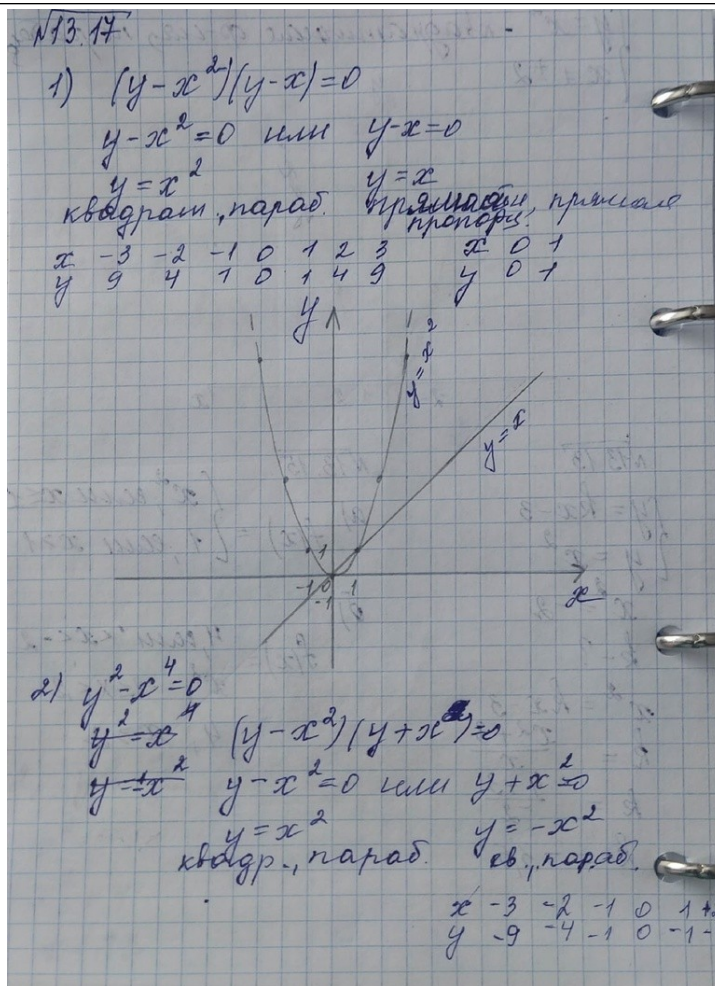 №13.17
1) (y-x²)(y-x)=0
y-x²=0 или y-x=0
y=x² y=x
квадрат., параб. прямая
пропорц.
x -3 -2 -1 0 1 2 3 x 0 1
y 9 4 1 0 1 4 9 y 0 1
y
y=x²
y=x
1
-1 0 1
-1
x
2) y²-x⁴=0
y²=x⁴ (y-x²)(y+x²)=0
y=±x² y-x²=0 или y+x²=0
y=x² y=-x²
квадр., параб. кв., параб.
x -3 -2 -1 0 1
y -9 -4 -1 0 -1 -